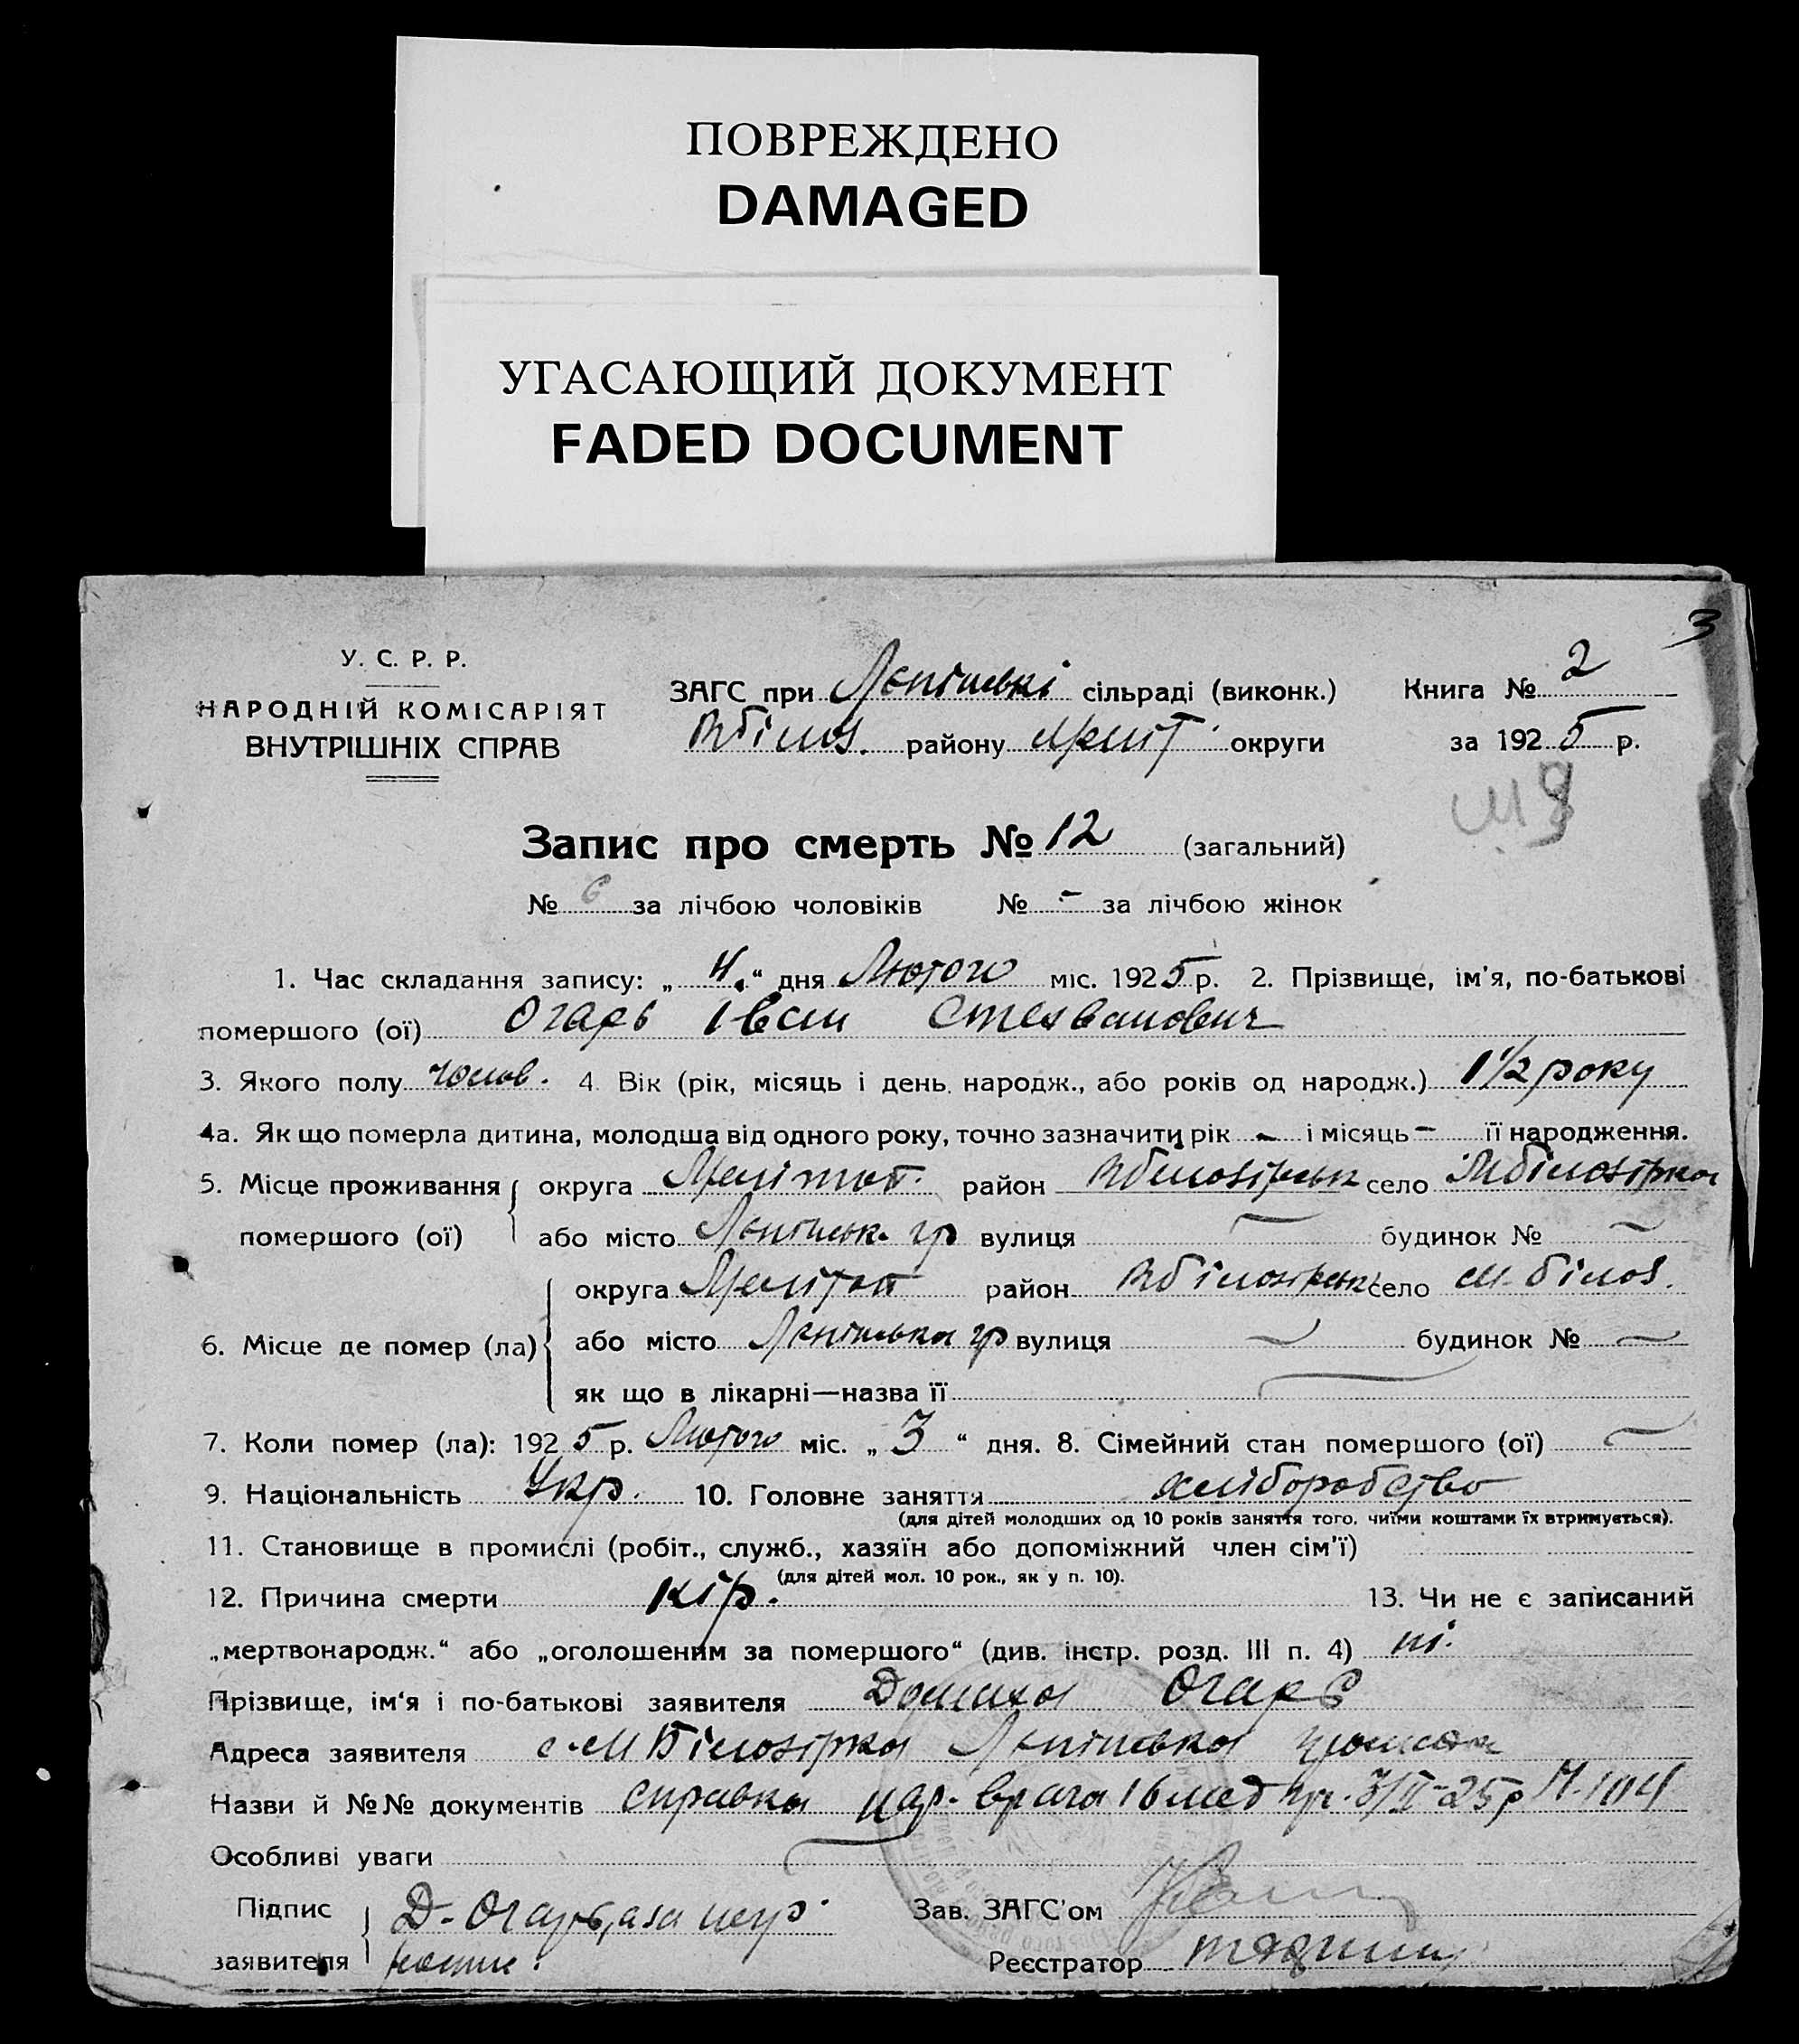 ПОВРЕЖДЕНО
DAMAGED
УГАСАЮЩИЙ ДОКУМЕНТ
FADED DOCUMENT
3
У. С. Р. Р.
НАРОДНІЙ КОМІСАРІЯТ
ВНУТРІШНІХ СПРАВ
ЗАГС при сільраді (виконк.)
району Меліт. округи
Книга № 2
за 1925 р.
Запис про смерть № 12 (загальний)
№ 6 за лічбою чоловіків № - за лічбою жінок
1. Час складання запису: „4.“ дня Лютого міс. 1925 р. 2. Прізвище, ім'я, по-батькові
помершого (ої) Огарь Іван Степанович
3. Якого полу чолов. 4. Вік (рік, місяць і день народж., або років од народж.) 1 1/2 року
4а. Як що померла дитина, молодша від одного року, точно зазначити рік - і місяць - її народження.
5. Місце проживання помершого (ої) округа Мелітоп. район Вбілозірськ село Мбілозірка
або місто гр вулиця — будинок № —
6. Місце де помер (ла) округа Мелітоп район Вбілозірськ село М-білоз.
або місто гр вулиця — будинок № —
як що в лікарні—назва її —
7. Коли помер (ла): 1925 р. Лютого міс. „3“ дня. 8. Сімейний стан помершого (ої) —
9. Національність Укр. 10. Головне заняття хліборобство
(для дітей молодших од 10 років заняття того, чиїми коштами їх втримується).
11. Становище в промислі (робіт., служб., хазяїн або допоміжний член сім'ї)
(для дітей мол. 10 рок., як у п. 10).
12. Причина смерти кір. 13. Чи не є записаний
„мертвонародж.“ або „оголошеним за помершого“ (див. інстр. розд. III п. 4) ні.
Прізвище, ім'я і по-батькові заявителя Домаха Огарь
Адреса заявителя с. М Білозірка громада
Назви й №№ документів справка врача 16 мед 3/II-25р
Особливі уваги —
Підпис заявителя Д. Огарь, а за
Зав. ЗАГС'ом
Реєстратор